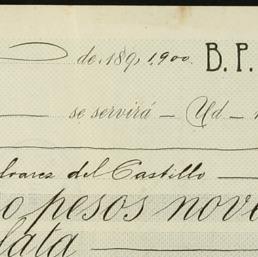 de 189 1900. B.P.
se servirá Ud
del Castillo
o pesos nove
lata